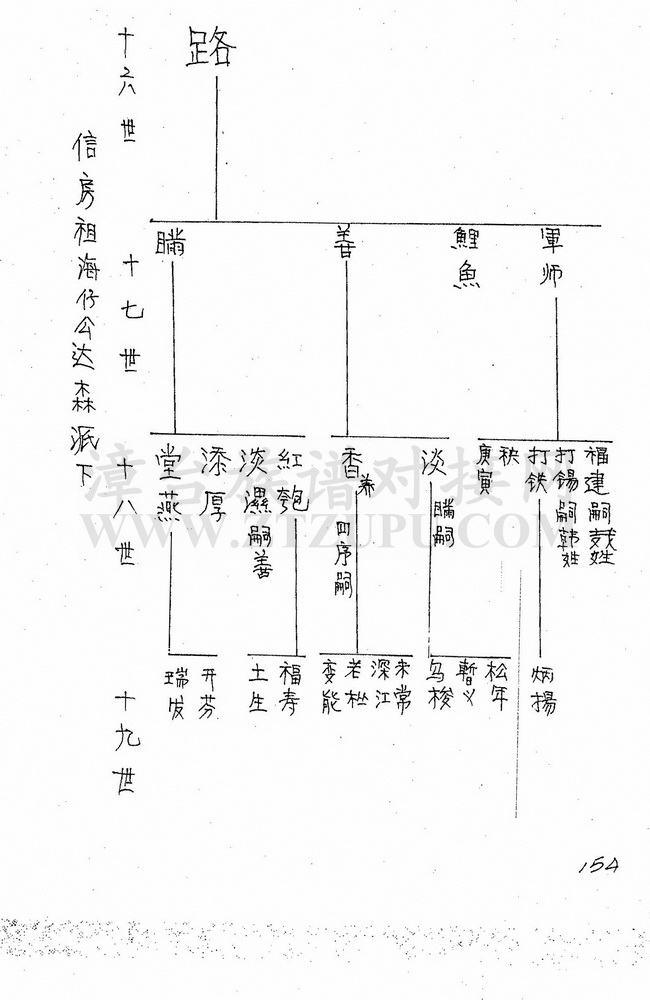 信房祖海仔公达森派下
十六世
路
十七世
軍师
鯉魚
善
瞞
十八世
福建嗣
打錫嗣韩姓
打鉄
秧
庚寅
淡
瞞嗣
香
养
四序嗣
紅
淡濕嗣善
添厚
堂燕
十九世
炳揚
松年
暫义
乌梭
来常
深江
老
变能
福寿
土生
开芬
瑞发
漳台族谱对接网
WWW.ZTZUPU.COM
154